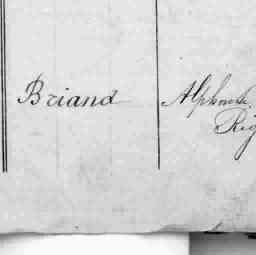 Briand Alphonse